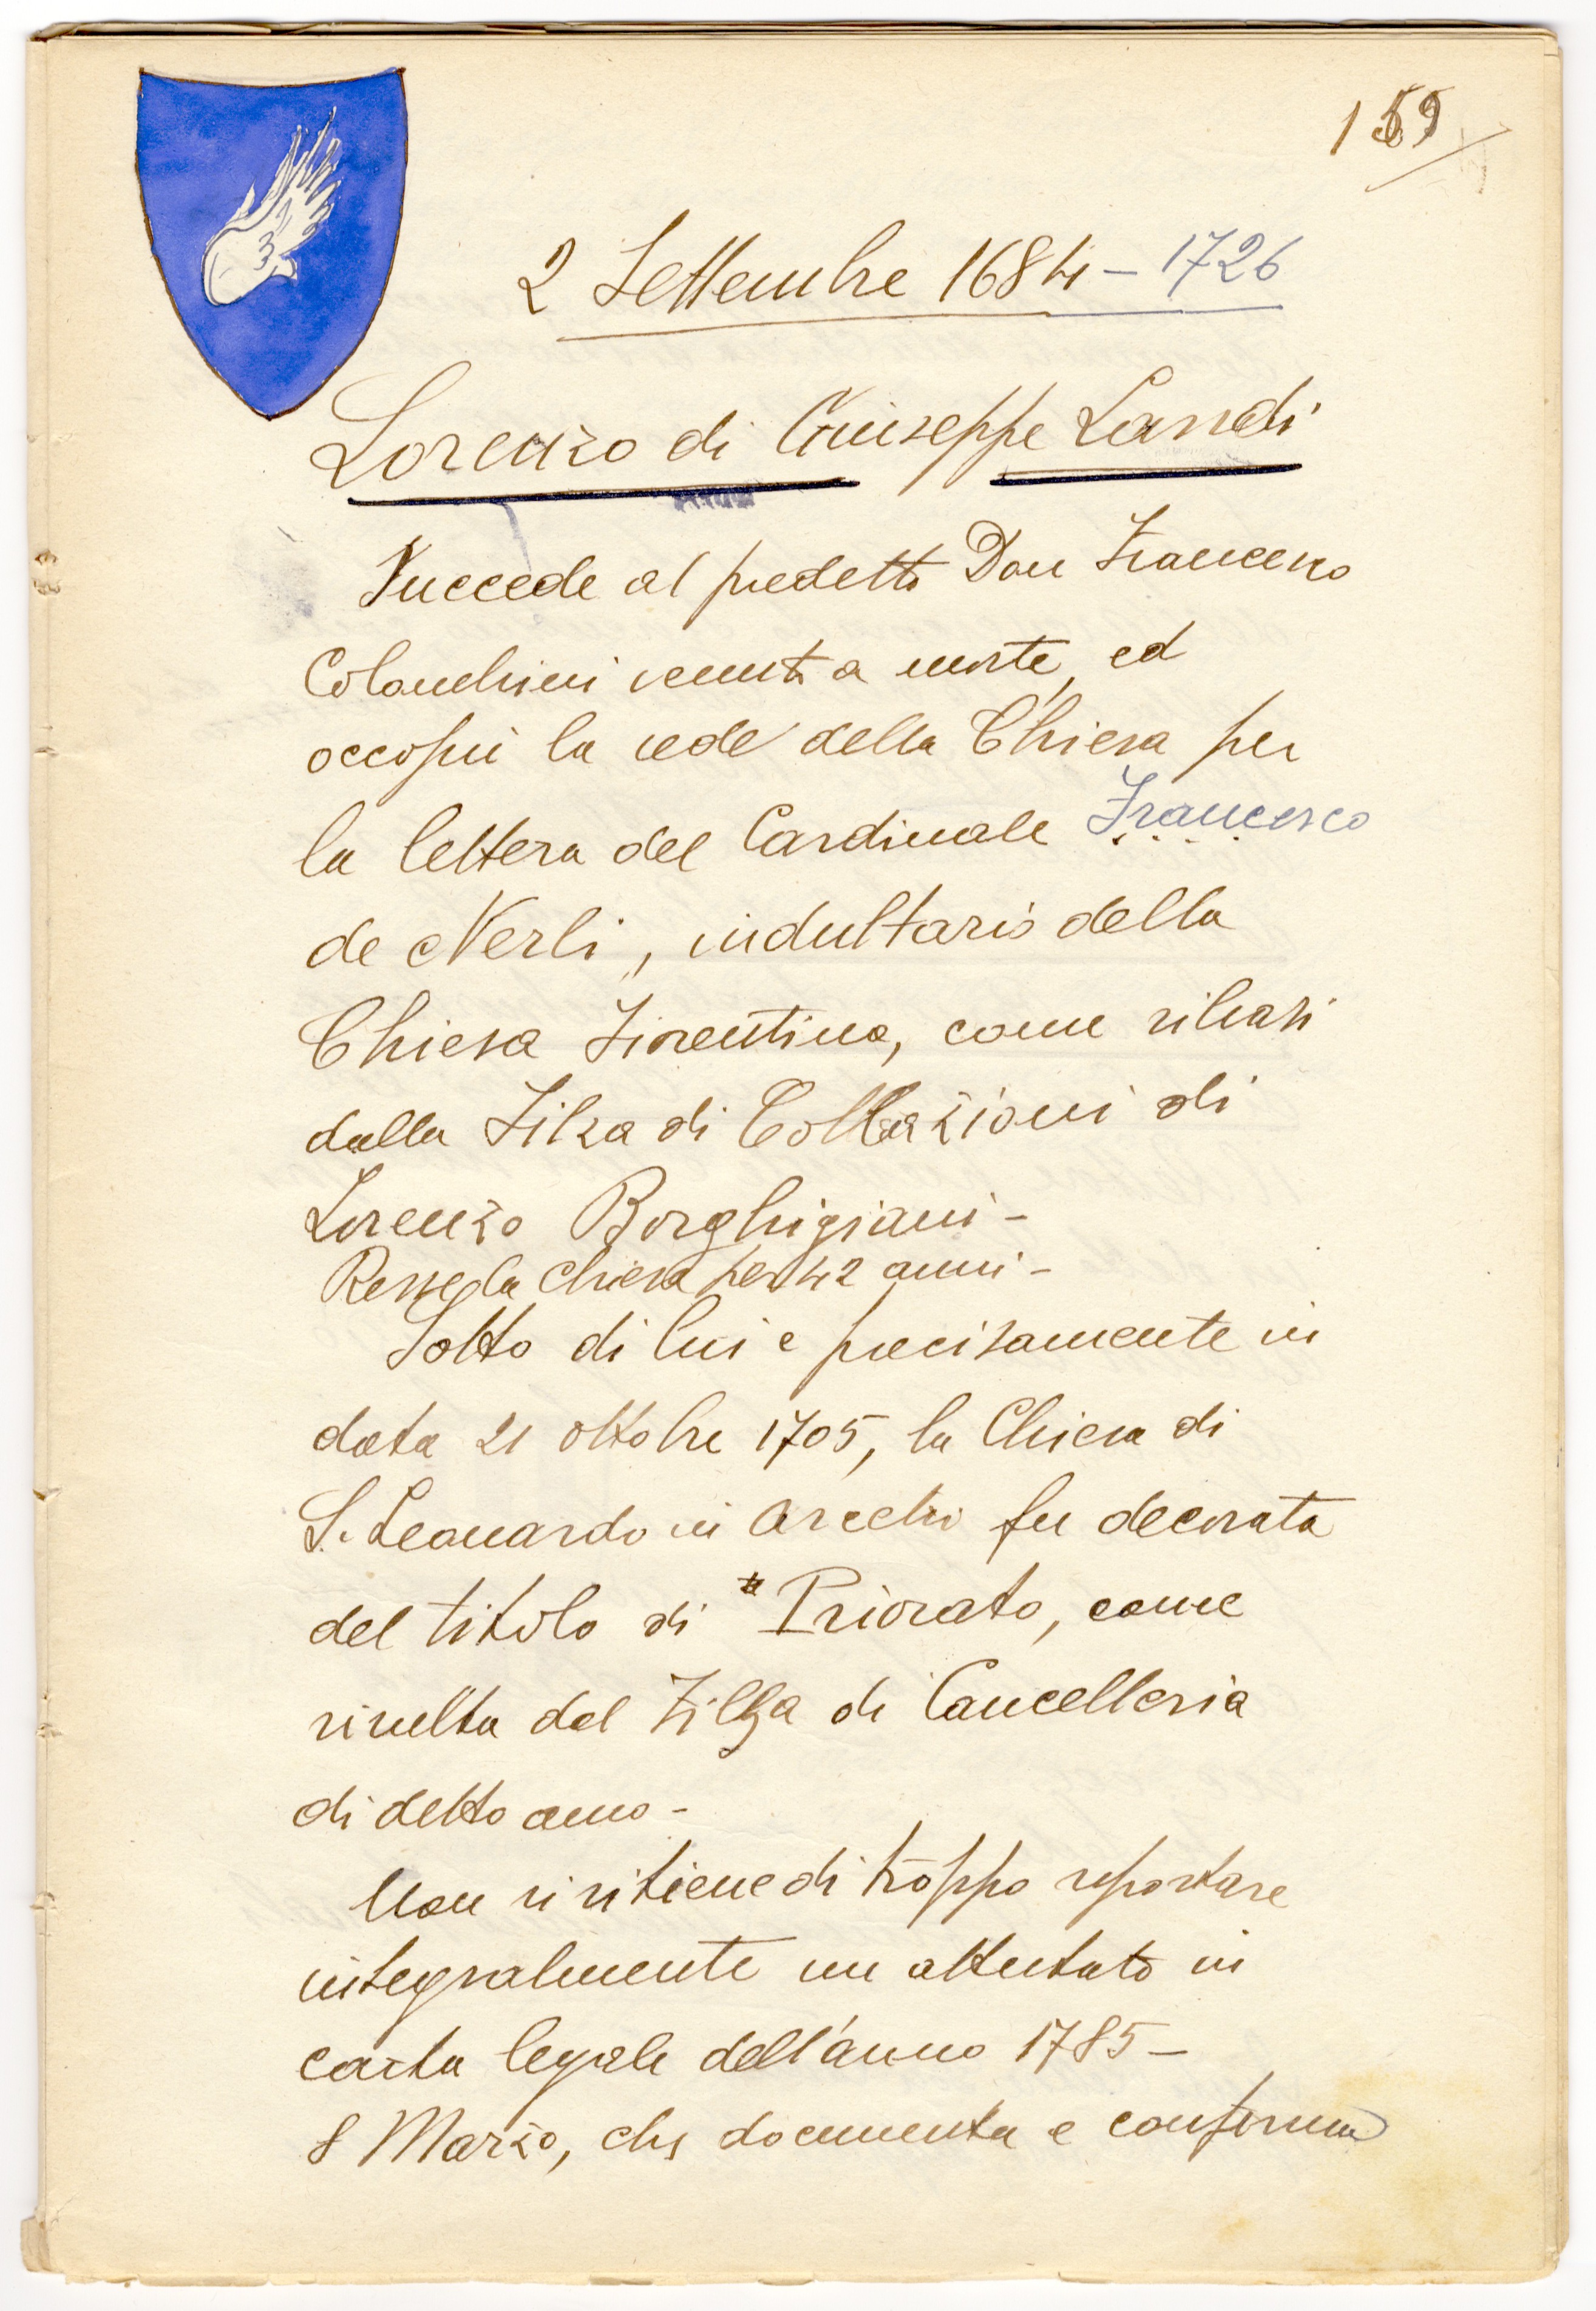 159
2 Settembre 1684 - 1726
Lorenzo di Giuseppe Landi
Succede al predetto Don Francesco
Colombini venuto a morte, ed
occupò la sede della Chiesa per
la lettera del Cardinale Francesco
de Nerli, indultario della
Chiesa Fiorentina, come rilevasi
dalla Filza di Collazioni di
Lorenzo Borghigiani -
Resse la Chiesa per 42 anni -
Sotto di lui e precisamente in
data 21 ottobre 1705, la Chiesa di
S. Leonardo in Arcetri fu decorata
del titolo di " Priorato, come
risulta dal Filza di Cancelleria
di detto anno -
Non si ritiene di troppo riportare
integralmente un attestato in
carta legale dell'anno 1785 -
8 Marzo, che documenta e conferma